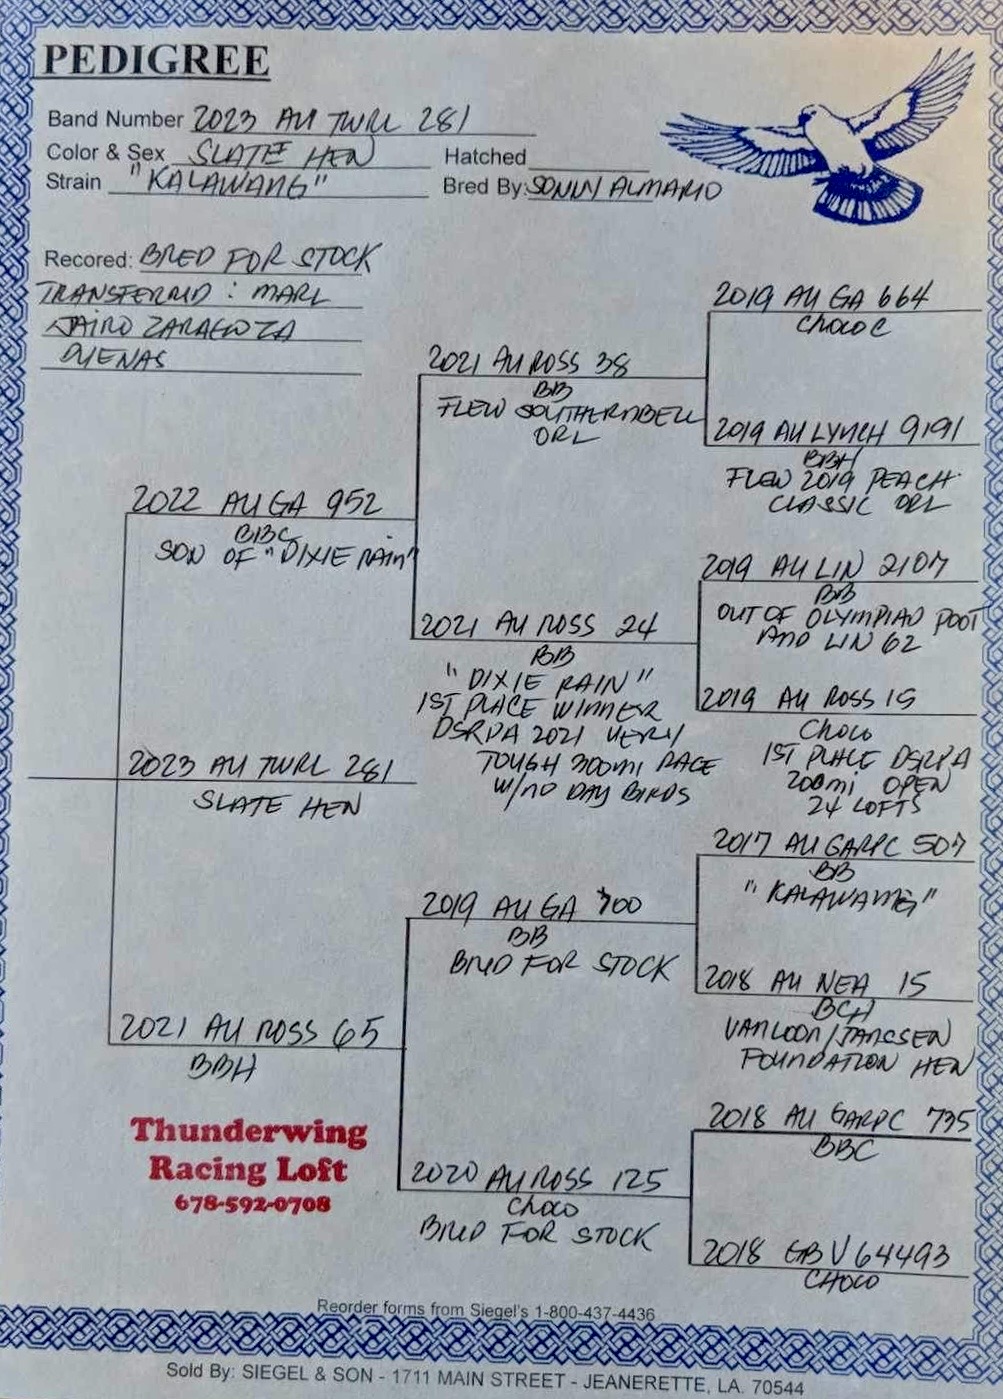 PEDIGREE
Band Number 2023 AU TWRL 281
Color & Sex SLATE HEN Hatched
Strain "KALAWANG" Bred By: SONNY ALMARIO
Recored: BRED FOR STOCK
TRANSFERRED : MARL
JAIRO ZARAGOZA
DUENAS
2019 AU GA 664
CHOCO C
2021 AU ROSS 38
BB
FLEW SOUTHERNBELL
ORL
2019 AU LYNCH 9191
BBH
FLEW 2019 PEACH
CLASSIC ORL
2022 AU GA 952
BBC
SON OF "DIXIE RAIN"
2019 AU LIN 2107
BB
OUT OF OLYMPIAD
AND LIN 62
2021 AU ROSS 24
BB
"DIXIE RAIN"
1ST PLACE WINNER
DSRPA 2021 VERY
TOUGH 300mi RACE
W/NO DAY BIRDS
2019 AU ROSS 15
CHOCO
1ST PLACE DSRPA
200mi OPEN
24 LOFTS
2023 AU TWRL 281
SLATE HEN
2017 AU GARPC 507
BB
"KALAWANG"
2019 AU GA 700
BB
BRED FOR STOCK
2018 AU NEA 15
BCH
VANLOON/JANSSEN
FOUNDATION HEN
2021 AU ROSS 65
BBH
2018 AU GARPC 735
BBC
2020 AU ROSS 125
CHOCO
BRED FOR STOCK
2018 GB V 64493
CHOCO
Thunderwing
Racing Loft
678-592-0708
Reorder forms from Siegel's 1-800-437-4436
Sold By: SIEGEL & SON - 1711 MAIN STREET - JEANERETTE, LA. 70544